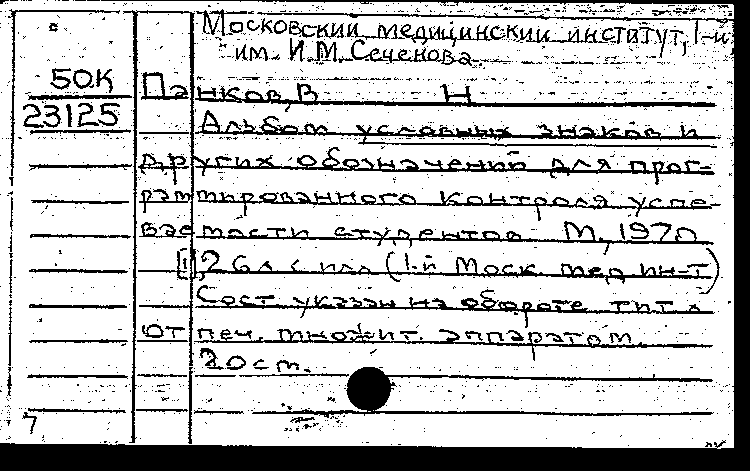 Московский медицинский институт, I-й
им. И.М. Сеченова
50К
23125
Панков, В Н
Альбом условных знаков и
других обозначений для прог-
раммированного контроля успе-
ваемости студентов М., 1970
[1], 26л с илл (I-й Моск. мед ин-т)
Сост. указан на обороте тит л
От печ. множит. аппаратом.
20 см.
7